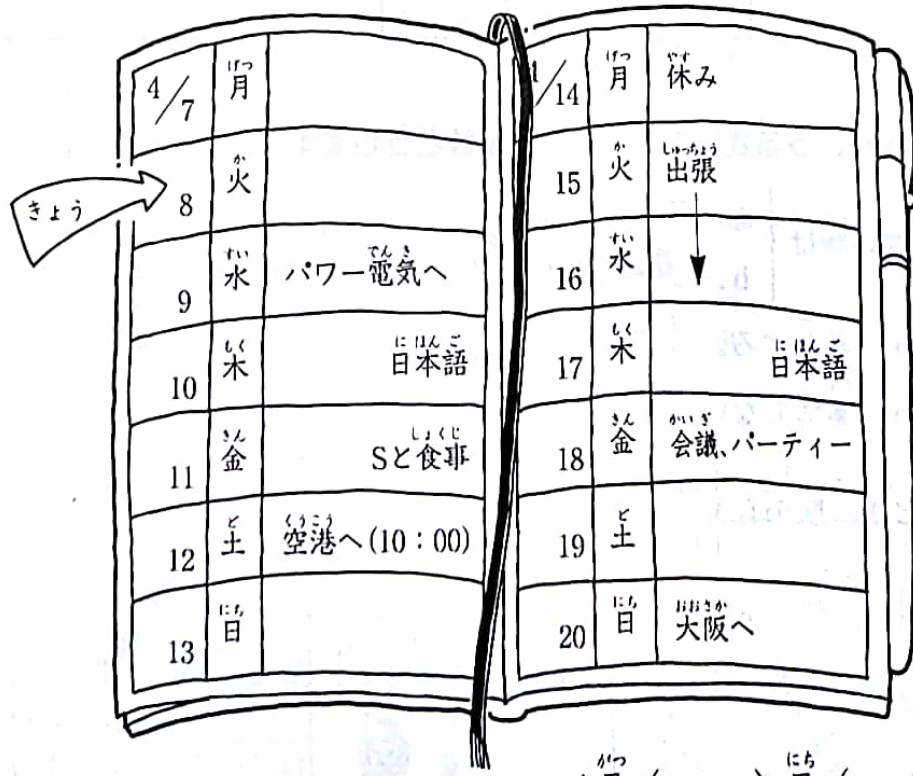 きょう
4/7 月 げつ
8 火 か
9 水 すい パワー電気へ でんき
10 木 もく 日本語 にほんご
11 金 きん Sと食事 しょくじ
12 土 ど 空港へ(10:00) くうこう
13 日 にち
/14 月 げつ 休み やす
15 火 か 出張 しゅっちょう
16 水 すい
17 木 もく 日本語 にほんご
18 金 きん 会議、パーティー かいぎ
19 土 ど
20 日 にち 大阪へ おおさか
がつ にち
b.